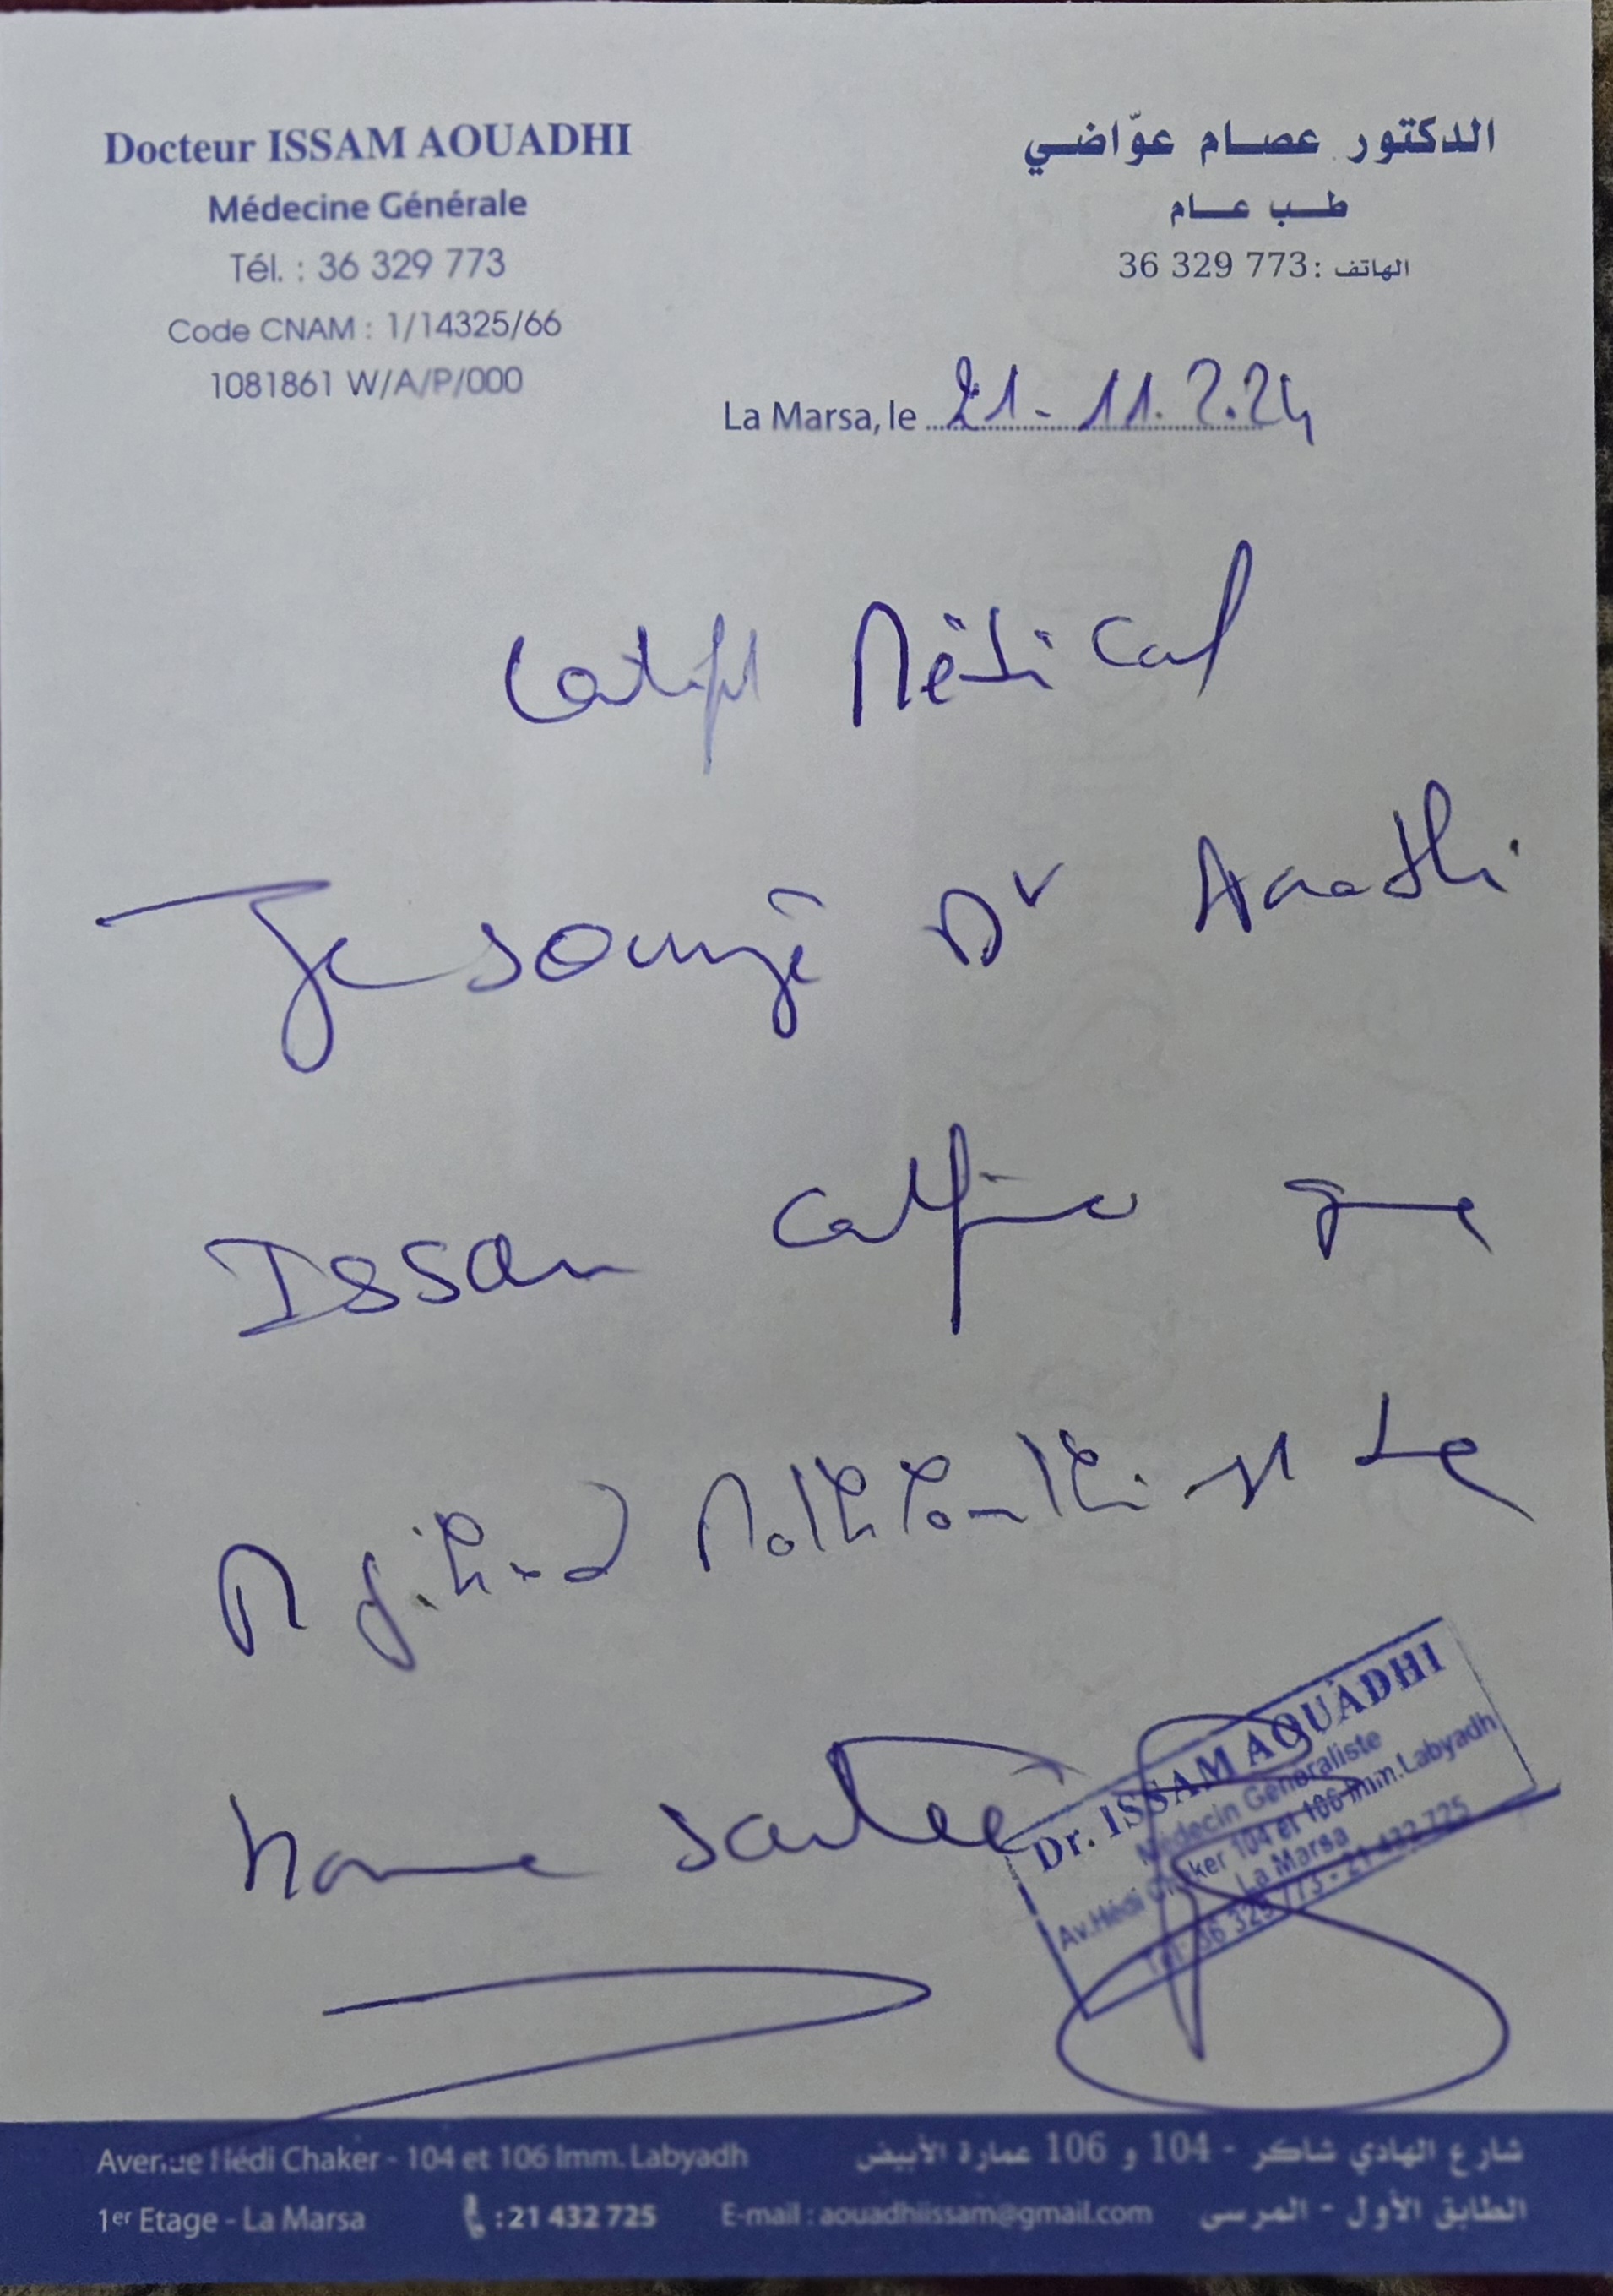 Docteur ISSAM AOUADHI
Médecine Générale
Tél. : 36 329 773
Code CNAM : 1/14325/66
1081861 W/A/P/000
الدكتور عصام عوّاضي
طب عام
الهاتف : 36 329 773
La Marsa, le 21-11.2.24
Certificat Médical
Je soussigné Dr Aouadhi
Issam certifie que
est de
bonne santé
Dr. ISSAM AOUADHI
Médecin Généraliste
Av.Hédi Chaker 104 et 106 Imm.Labyadh
La Marsa
Tél: 36 329 773 - 21 432 725
Avenue Hédi Chaker - 104 et 106 Imm. Labyadh
1er Etage - La Marsa
: 21 432 725
E-mail : aouadhiissam@gmail.com
شارع الهادي شاكر - 104 و 106 عمارة الأبيض
الطابق الأول - المرسى